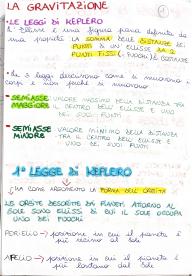 LA GRAVITAZIONE
• LE LEGGI DI KEPLERO
L'Ellisse è una figura piana definita da
una proprietà la SOMMA DELLE DISTANZE DEI
PUNTI DI UN ELLISSE DA 2
PUNTI FISSI (FUOCHI) È COSTANTE
• Le 3 leggi descrivono come si muovono i
corpi e non perché si muovono
• SEMIASSE MAGGIORE → VALORE MASSIMO DELLA DISTANZA TRA
IL CENTRO DELL'ELLISSE E UNO
DEI SUOI PUNTI
• SEMIASSE MINORE → VALORE MINIMO DELLA DISTANZA
TRA IL CENTRO DELL'ELLISSE E
UNO DEI SUOI PUNTI
1° LEGGE DI KEPLERO
HA COME ARGOMENTO LA FORMA DELL'ORBITA
LE ORBITE DESCRITTE DAI PIANETI ATTORNO AL
SOLE SONO ELLISSI DI CUI IL SOLE OCCUPA
UNO DEI FUOCHI
PERIELIO → posizione in cui il pianeta è
più vicino al Sole
AFELIO → posizione in cui il pianeta è
più lontano dal Sole